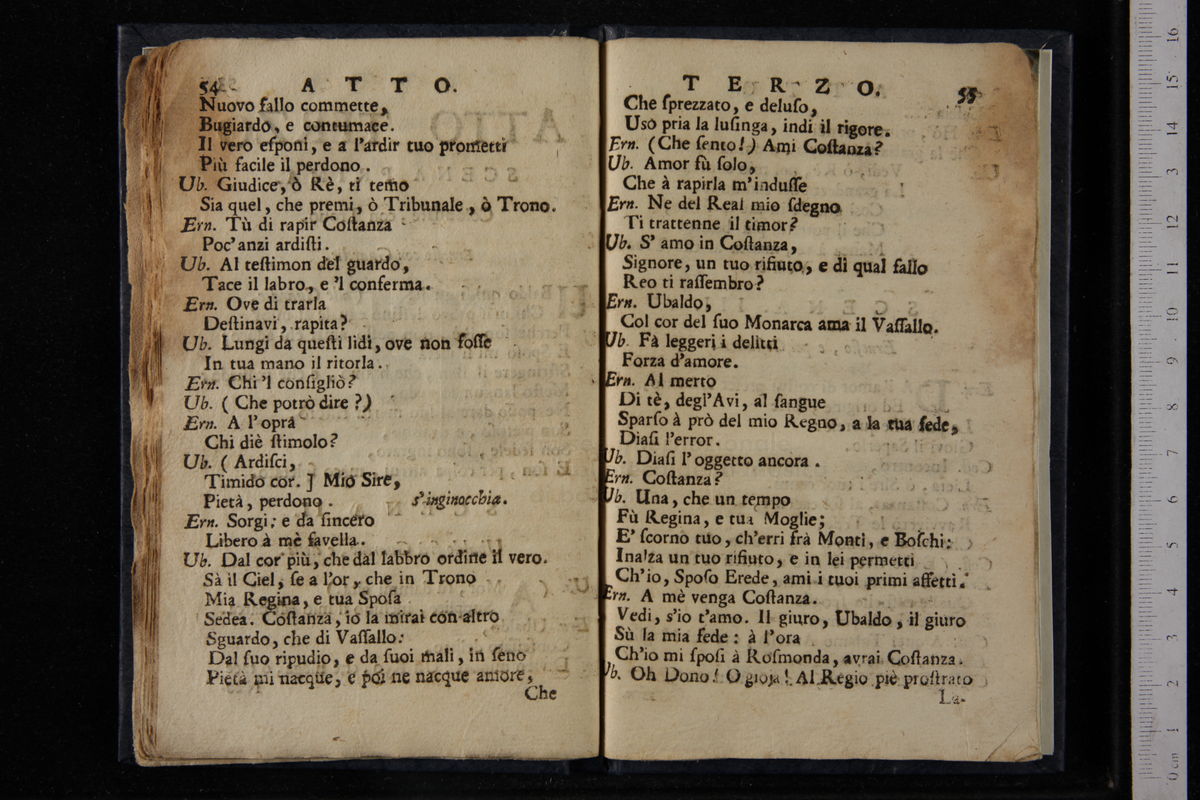 54 ATTO.
Nuovo fallo commette,
Bugiardo, e contumace.
Il vero esponi, e a l'ardir tuo prometti
Più facile il perdono.
Ub. Giudice, ò Rè, ti temo
Sia quel, che premi, ò Tribunale, ò Trono.
Ern. Tù di rapir Coſtanza
Poc'anzi ardiſti.
Ub. Al teſtimon del guardo,
Tace il labro, e 'l conferma.
Ern. Ove di trarla
Deſtinavi, rapita?
Ub. Lungi da queſti lidi, ove non foſſe
In tua mano il ritorla.
Ern. Chi 'l conſigliò?
Ub. ( Che potrò dire ?)
Ern. A l'opra
Chi diè ſtimolo?
Ub. ( Ardiſci,
Timido cor. ] Mio Sire,
Pietà, perdono. s'inginocchia.
Ern. Sorgi; e da ſincero
Libero à mè favella.
Ub. Dal cor più, che dal labbro ordine il vero.
Sà il Ciel, ſe a l'or, che in Trono
Mia Regina, e tua Spoſa
Sedea. Coſtanza, io la mirai con altro
Sguardo, che di Vaſſallo:
Dal ſuo ripudio, e da ſuoi mali, in ſeno
Pietà mi nacque, e poi ne nacque amore,
Che
TERZO. 55
Che ſprezzato, e deluſo,
Usò pria la luſinga, indi il rigore.
Ern. (Che ſento!) Ami Coſtanza?
Ub. Amor fù ſolo,
Che à rapirla m'induſſe
Ern. Ne del Real mio ſdegno
Ti trattenne il timor?
Ub. S' amo in Coſtanza,
Signore, un tuo rifiuto, e di qual fallo
Reo ti raſſembro?
Ern. Ubaldo,
Col cor del ſuo Monarca ama il Vaſſallo.
Ub. Fà leggeri i delitti
Forza d'amore.
Ern. Al merto
Di tè, degl'Avi, al ſangue
Sparſo à prò del mio Regno, a la tua fede,
Diaſi l'error.
Ub. Diaſi l'oggetto ancora.
Ern. Coſtanza?
Ub. Una, che un tempo
Fù Regina, e tua Moglie;
E' ſcorno tuo, ch'erri frà Monti, e Boſchi:
Inalza un tuo rifiuto, e in lei permetti
Ch'io, Spoſo Erede, ami i tuoi primi affetti.
Ern. A mè venga Coſtanza.
Vedi, s'io t'amo. Il giuro, Ubaldo, il giuro
Sù la mia fede: à l'ora
Ch'io mi ſpoſi à Roſmonda, avrai Coſtanza.
Ub. Oh Dono! O gioja! Al Regio piè proſtrato
La-